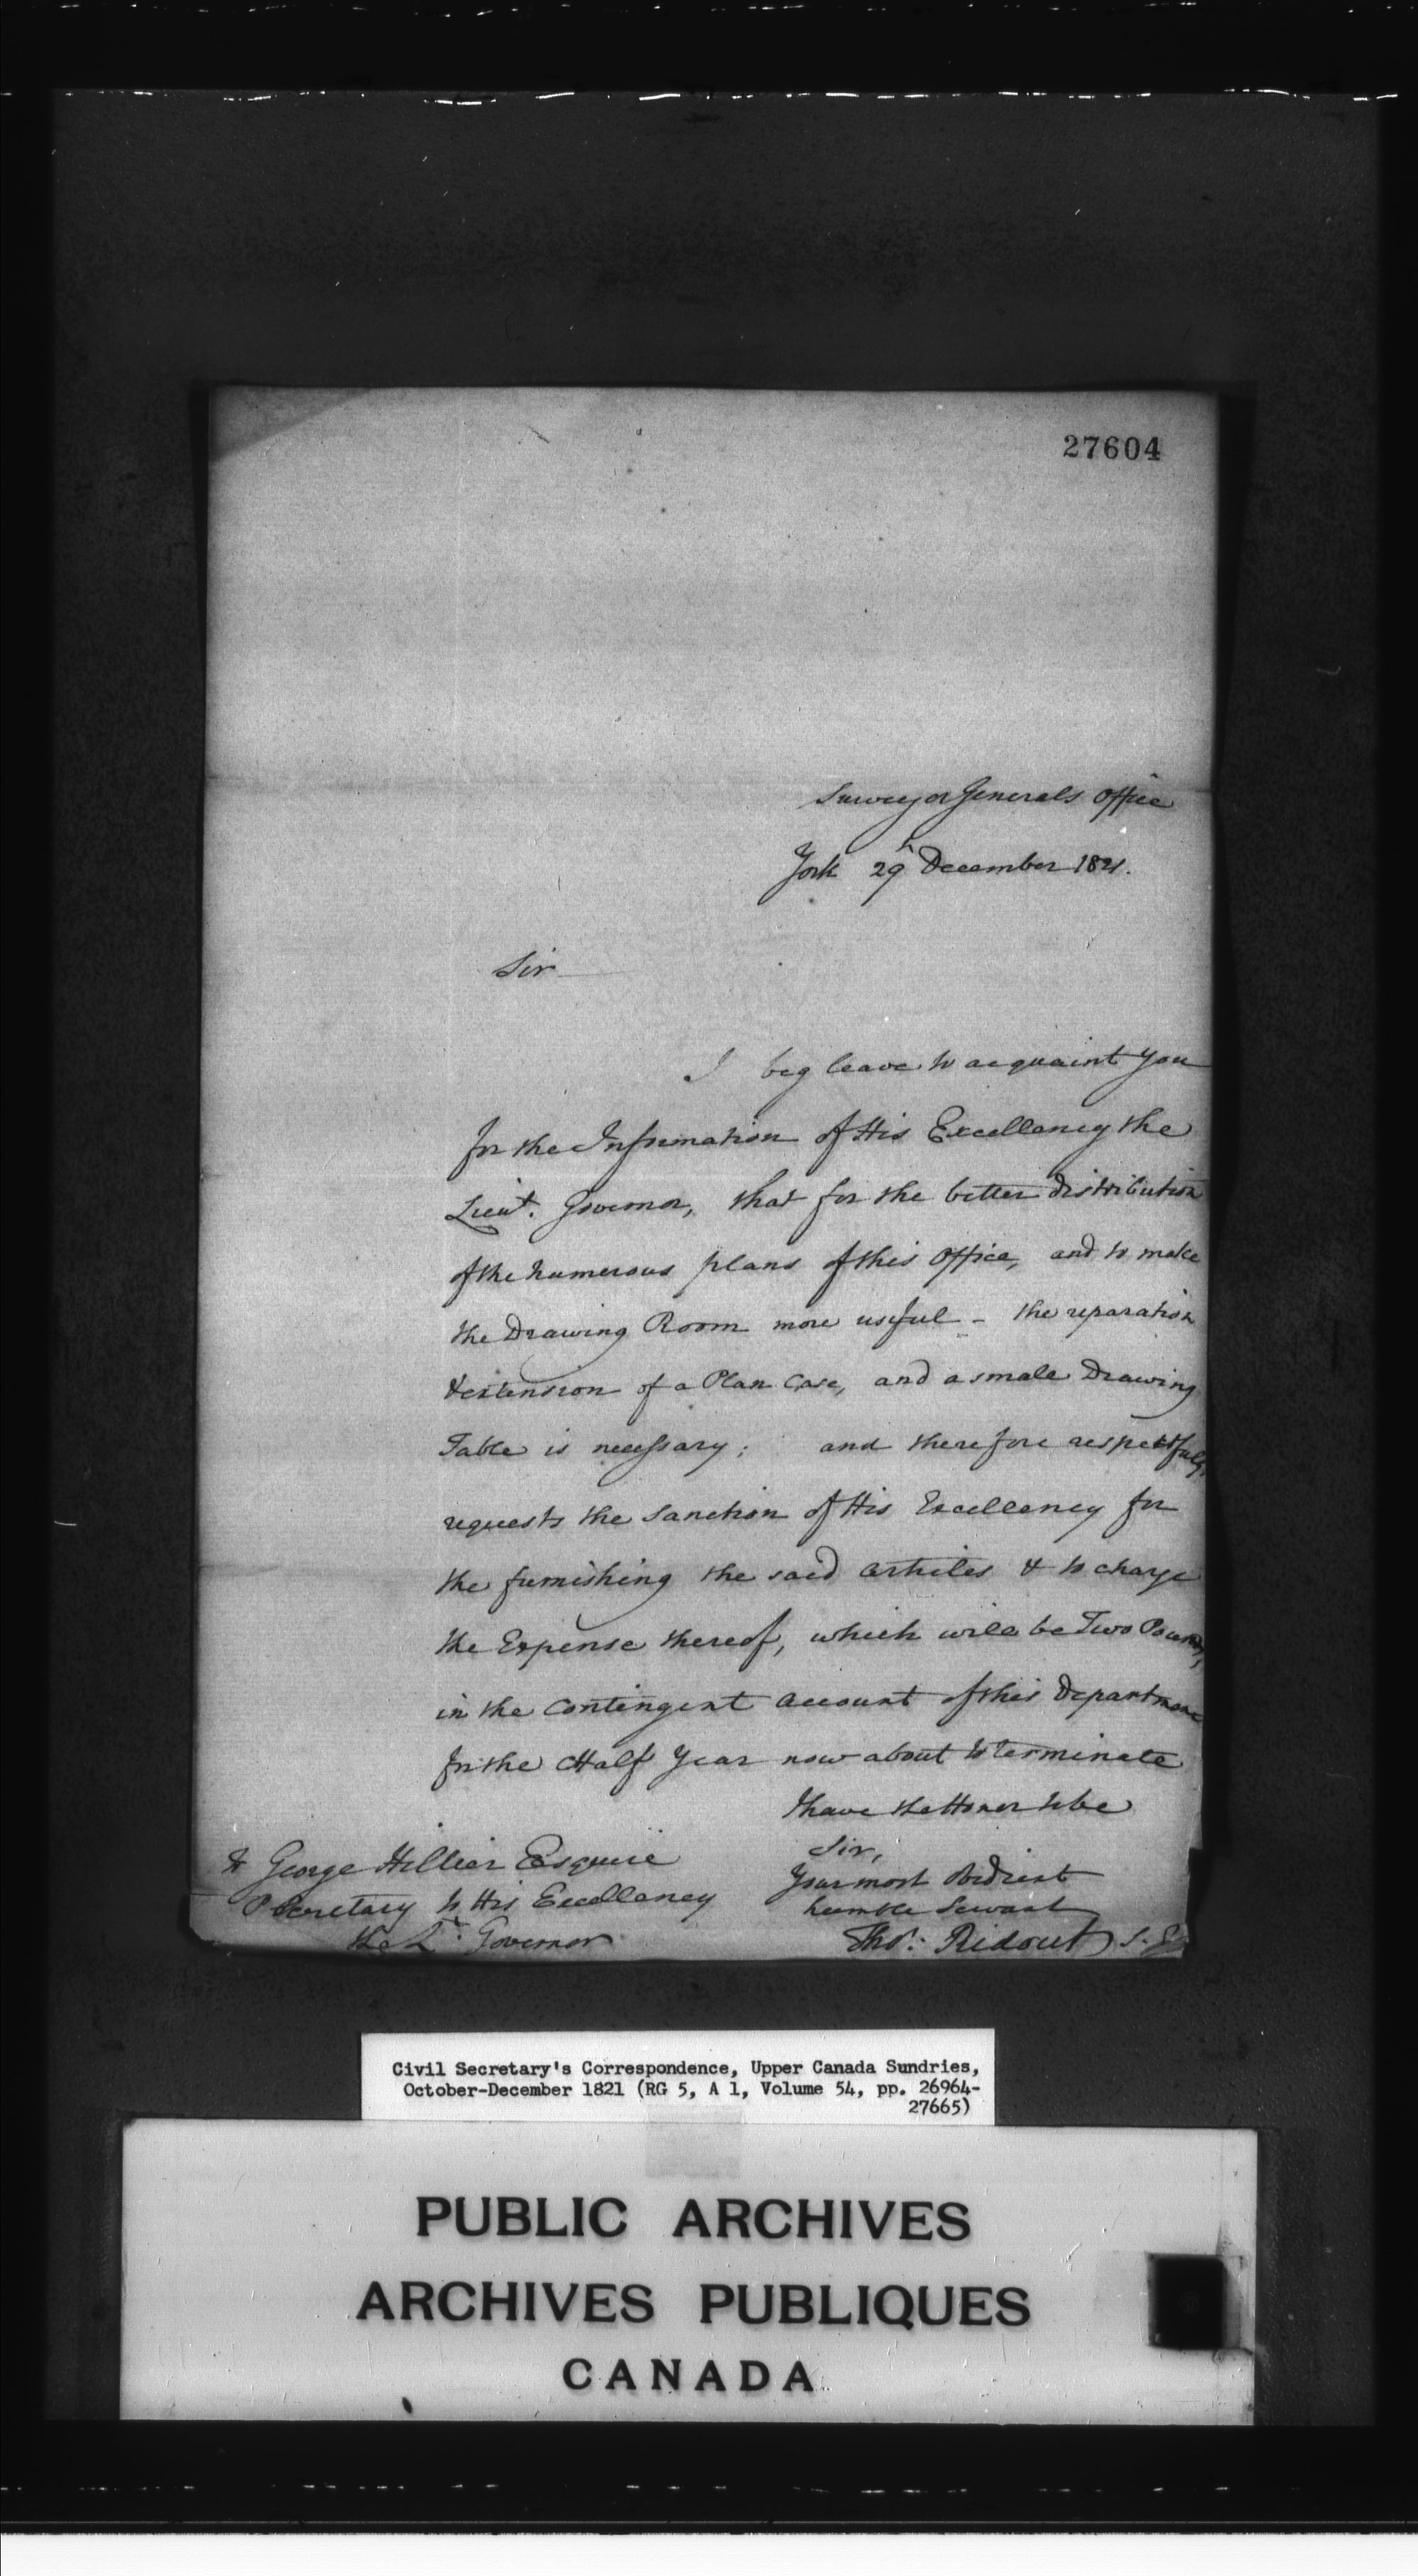 27604
Surveyor Generals Office
York 29h December 1821.
Sir
I beg leave to acquaint you
for the Information of His Excellency the
Lieut. Governor, that for the better distribution
of the numerous plans of this Office, and to make
the Drawing Room more useful - the reparation
& extension of a Plan Case, and a small Drawing
Table is necessary; and therefore respectfully
requests the Sanction of His Excellency for
the furnishing the said articles & to charge
the Expense thereof, which will be Two Pounds,
in the Contingent account of this Department
for the Half Year now about to terminate
I have the Honor to be
Sir,
Your most Obedient
humble Servant
Thos: Ridout S. G
To George Hillier Esquire
Secretary to His Excellency
the Lt. Governor
Civil Secretary's Correspondence, Upper Canada Sundries,
October-December 1821 (RG 5, A 1, Volume 54, pp. 26964-
27665)
PUBLIC ARCHIVES
ARCHIVES PUBLIQUES
CANADA